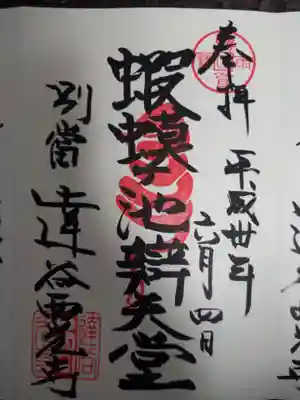 奉拝
平成卅年
六月四日
蝦蟆ヶ池辯天堂
別當
達谷西光寺